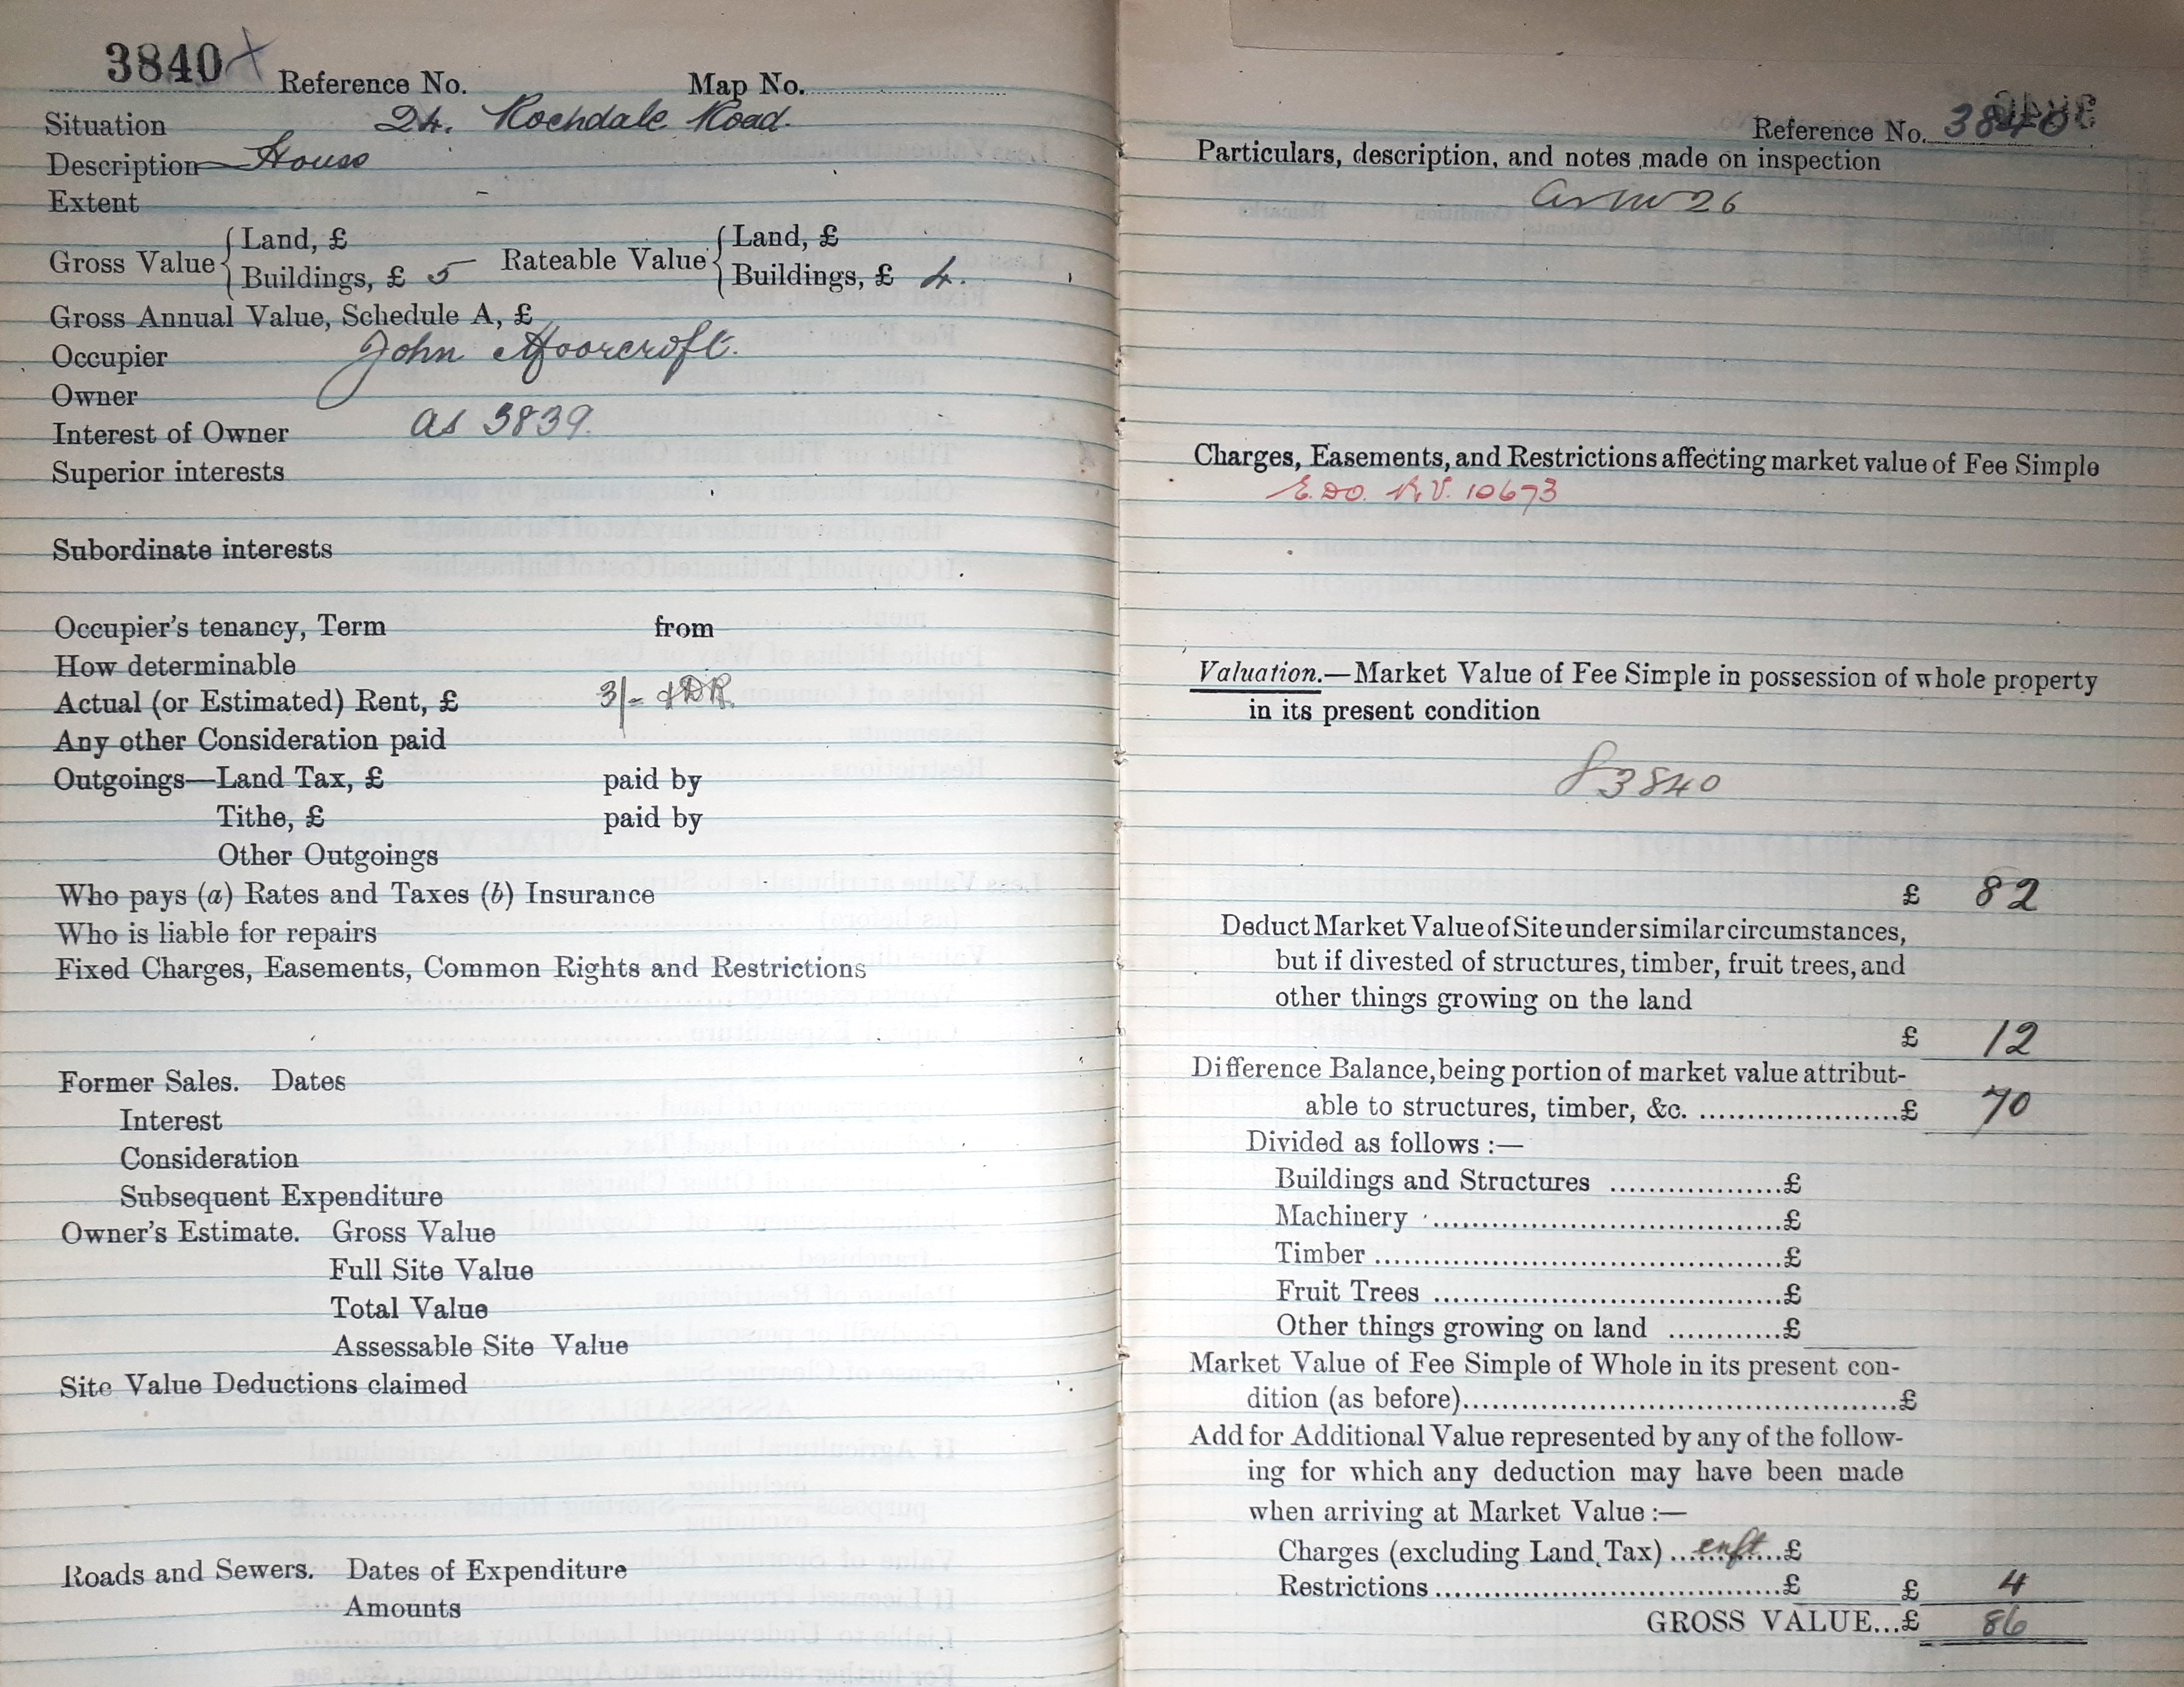 3840 Reference No. Map No.
Situation 24. Rochdale Road.
Description House
Extent -
Gross Value { Land, £ Buildings, £ 5 Rateable Value { Land, £ Buildings, £ 4.
Gross Annual Value, Schedule A, £
Occupier John Moorcroft.
Owner
Interest of Owner as 3839.
Superior interests
Subordinate interests
Occupier's tenancy, Term from
How determinable
Actual (or Estimated) Rent, £ 3/-
Any other Consideration paid
Outgoings—Land Tax, £ paid by
Tithe, £ paid by
Other Outgoings
Who pays (a) Rates and Taxes (b) Insurance
Who is liable for repairs
Fixed Charges, Easements, Common Rights and Restrictions
Former Sales. Dates
Interest
Consideration
Subsequent Expenditure
Owner's Estimate. Gross Value
Full Site Value
Total Value
Assessable Site Value
Site Value Deductions claimed
Roads and Sewers. Dates of Expenditure
Amounts
Reference No. 3840
Particulars, description, and notes made on inspection
26
Charges, Easements, and Restrictions affecting market value of Fee Simple
10673
Valuation.—Market Value of Fee Simple in possession of whole property
in its present condition
3840
£ 82
Deduct Market Value of Site under similar circumstances,
but if divested of structures, timber, fruit trees, and
other things growing on the land
£ 12
Difference Balance, being portion of market value attribut-
able to structures, timber, &c. ......................£ 70
Divided as follows :—
Buildings and Structures ..................£
Machinery ....................................£
Timber ..........................................£
Fruit Trees ....................................£
Other things growing on land ............£
Market Value of Fee Simple of Whole in its present con-
dition (as before)..............................................£
Add for Additional Value represented by any of the follow-
ing for which any deduction may have been made
when arriving at Market Value :—
Charges (excluding Land Tax) ...enft...£
Restrictions ....................................£ £ 4
GROSS VALUE...£ 86